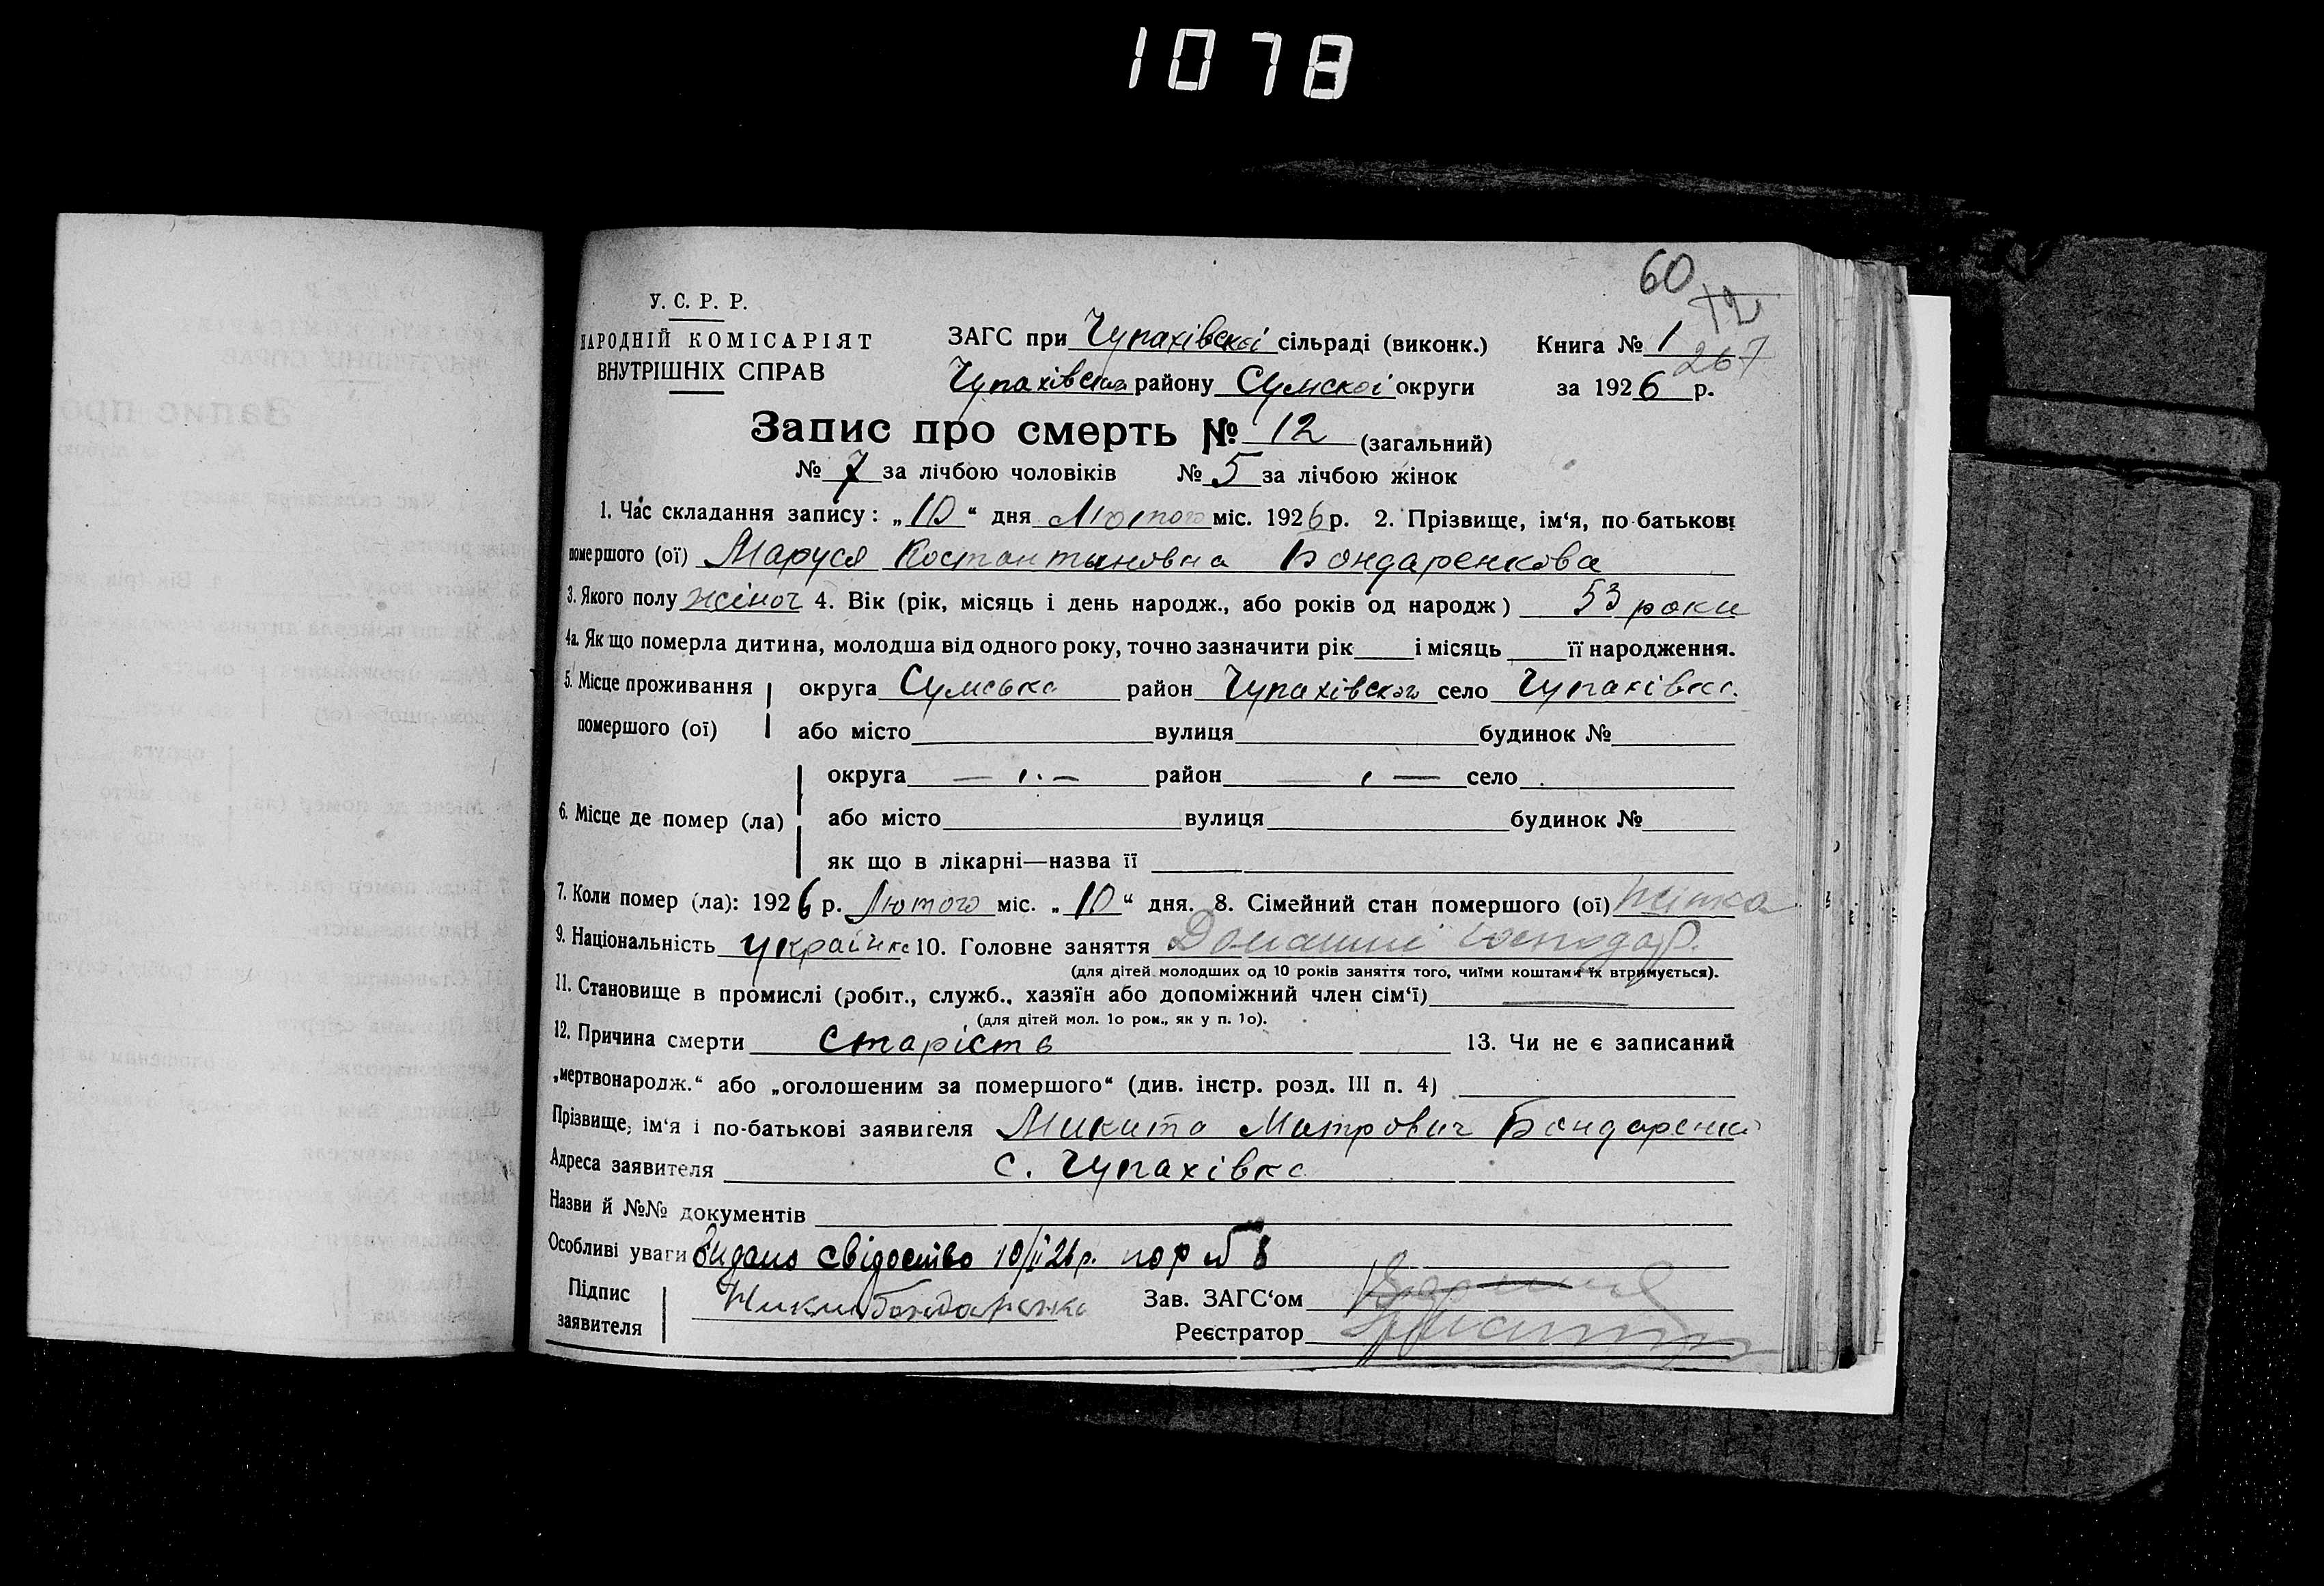 1078
60
12
У. С. Р. Р.
НАРОДНІЙ КОМІСАРІЯТ
ВНУТРІШНІХ СПРАВ
ЗАГС при Чупахівскої сільраді (виконк.) Книга № 1
267
Чупахівська району Сумскої округи за 1926 р.
Запис про смерть № 12 (загальний)
№ 7 за лічбою чоловіків № 5 за лічбою жінок
1. Час складання запису: „10“ дня Лютого міс. 1926 р. 2. Прізвище, ім‘я, по-батькові
помершого (ої) Маруся Костантиновна Бондаренкова
3. Якого полу жіноч 4. Вік (рік, місяць і день народж., або років од народж) 53 роки
4а. Як що померла дитина, молодша від одного року, точно зазначити рік і місяць її народження.
5. Місце проживання округа Сумська район Чупахівского село Чупахівка.
помершого (ої) або місто вулиця будинок №
округа — ı . — район — ı — село
6. Місце де помер (ла) або місто вулиця будинок №
як що в лікарні—назва її
7. Коли помер (ла): 1926 р. Лютого міс. „10“ дня. 8. Сімейний стан помершого (ої)
9. Національність українка 10. Головне заняття Домашнє господар.
(для дітей молодших од 10 років заняття того, чиїми коштами їх втримується).
11. Становище в промислі (робіт., служб., хазяїн або допоміжний член сім‘ї) —
(для дітей мол. 1о рок., як у п. 1о).
12. Причина смерти старість 13. Чи не є записаний
„мертвонародж.“ або „оголошеним за помершого“ (див. інстр. розд. III п. 4)
Прізвище, ім‘я і по-батькові заявителя Микита Митрович Бондаренко
Адреса заявителя с. Чупахівка
Назви й №№ документів
Особливі уваги Видано свідоство 10/II 26 р. пор № 8
Підпис
заявителя Бондаренко
Зав. ЗАГС‘ом
Реєстратор